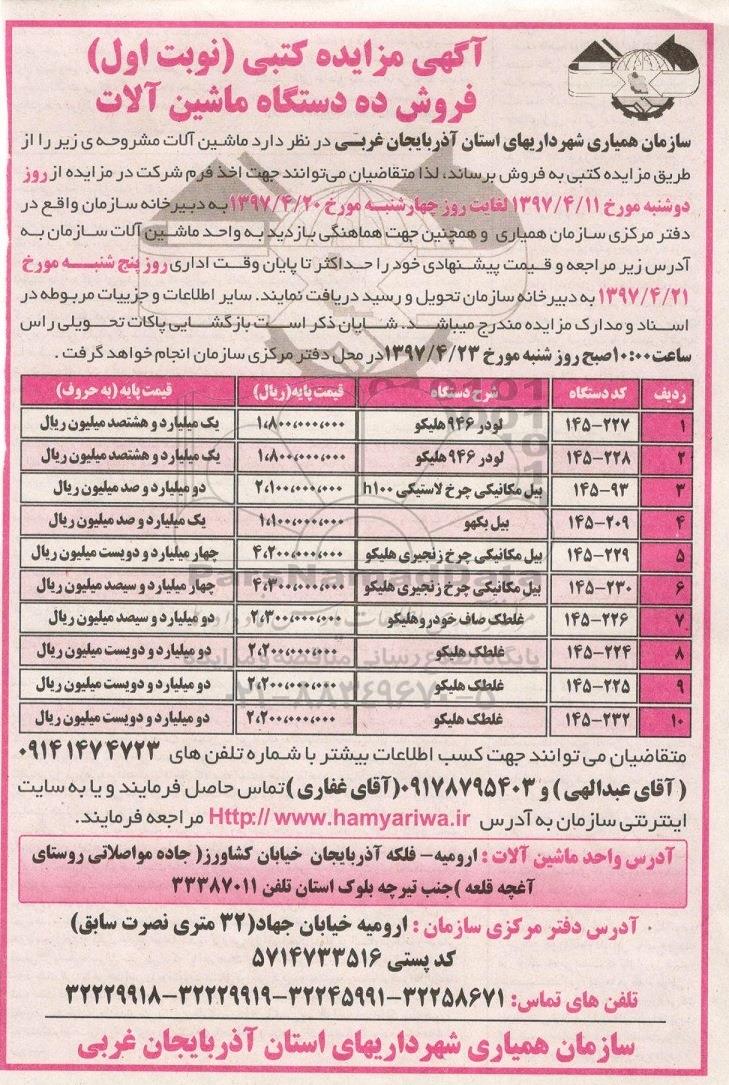 آگهی مزایده کتبی (نوبت اول)
فروش ده دستگاه ماشین آلات
سازمان همیاری شهرداریهای استان آذربایجان غربی در نظر دارد ماشین آلات مشروحه ی زیر را از
طریق مزایده کتبی به فروش برساند، لذا متقاضیان می‌توانند جهت اخذ فرم شرکت در مزایده از روز
دوشنبه مورخ ۱۳۹۷/۴/۱۱ لغایت روز چهارشنبه مورخ ۱۳۹۷/۴/۲۰ به دبیرخانه سازمان واقع در
دفتر مرکزی سازمان همیاری و همچنین جهت هماهنگی بازدید به واحد ماشین آلات سازمان به
آدرس زیر مراجعه و قیمت پیشنهادی خود را حداکثر تا پایان وقت اداری روز پنج شنبه مورخ
۱۳۹۷/۴/۲۱ به دبیرخانه سازمان تحویل و رسید دریافت نمایند. سایر اطلاعات و جزییات مربوطه در
اسناد و مدارک مزایده مندرج میباشد. شایان ذکر است بازگشایی پاکات تحویلی راس
ساعت ۱۰:۰۰ صبح روز شنبه مورخ ۱۳۹۷/۴/۲۳ در محل دفتر مرکزی سازمان انجام خواهد گرفت.
ردیف کد دستگاه شرح دستگاه قیمت پایه (ریال) قیمت پایه (به حروف)
۱ ۱۴۵-۲۲۷ لودر ۹۴۶ هلیکو ۱،۸۰۰،۰۰۰،۰۰۰ یک میلیارد و هشتصد میلیون ریال
۲ ۱۴۵-۲۲۸ لودر ۹۴۶ هلیکو ۱،۸۰۰،۰۰۰،۰۰۰ یک میلیارد و هشتصد میلیون ریال
۳ ۱۴۵-۹۳ بیل مکانیکی چرخ لاستیکی h۱۰۰ ۲،۱۰۰،۰۰۰،۰۰۰ دو میلیارد و صد میلیون ریال
۴ ۱۴۵-۲۰۹ بیل بکهو ۱،۱۰۰،۰۰۰،۰۰۰ یک میلیارد و صد میلیون ریال
۵ ۱۴۵-۲۲۹ بیل مکانیکی چرخ زنجیری هلیکو ۴،۲۰۰،۰۰۰،۰۰۰ چهار میلیارد و دویست میلیون ریال
۶ ۱۴۵-۲۳۰ بیل مکانیکی چرخ زنجیری هلیکو ۴،۳۰۰،۰۰۰،۰۰۰ چهار میلیارد و سیصد میلیون ریال
۷ ۱۴۵-۲۲۶ غلطک صاف خودرو هلیکو ۲،۳۰۰،۰۰۰،۰۰۰ دو میلیارد و سیصد میلیون ریال
۸ ۱۴۵-۲۲۴ غلطک هلیکو ۲،۲۰۰،۰۰۰،۰۰۰ دو میلیارد و دویست میلیون ریال
۹ ۱۴۵-۲۲۵ غلطک هلیکو ۲،۲۰۰،۰۰۰،۰۰۰ دو میلیارد و دویست میلیون ریال
۱۰ ۱۴۵-۲۳۲ غلطک هلیکو ۲،۲۰۰،۰۰۰،۰۰۰ دو میلیارد و دویست میلیون ریال
متقاضیان می توانند جهت کسب اطلاعات بیشتر با شماره تلفن های ۰۹۱۴۱۴۷۴۷۲۳
(آقای عبدالهی) و ۰۹۱۷۸۷۹۵۴۰۳ (آقای غفاری) تماس حاصل فرمایند و یا به سایت
اینترنتی سازمان به آدرس Http:// www.hamyariwa.ir مراجعه فرمایند.
آدرس واحد ماشین آلات : ارومیه - فلکه آذربایجان خیابان کشاورز( جاده مواصلاتی روستای
آغچه قلعه )جنب تیرچه بلوک استان تلفن ۳۳۳۸۷۰۱۱
آدرس دفتر مرکزی سازمان : ارومیه خیابان جهاد(۳۲ متری نصرت سابق)
کد پستی ۵۷۱۴۷۳۳۵۱۶
تلفن های تماس: ۳۲۲۵۸۶۷۱-۳۲۲۴۵۹۹۱-۳۲۲۲۹۹۱۹-۳۲۲۲۹۹۱۸
سازمان همیاری شهرداریهای استان آذربایجان غربی